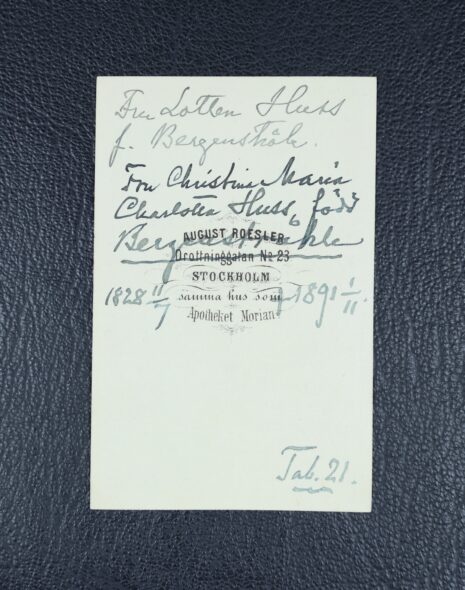 Fru Lotten Huss
f. Bergenstråle.
Fru Christina Maria
Charlotta Huss, född
Bergenstråhle
AUGUST ROESLER
Drottninggatan No 23
STOCKHOLM
1828 11/7
samma hus som
† 1891 1/11.
Apotheket Morian
Tab. 21.